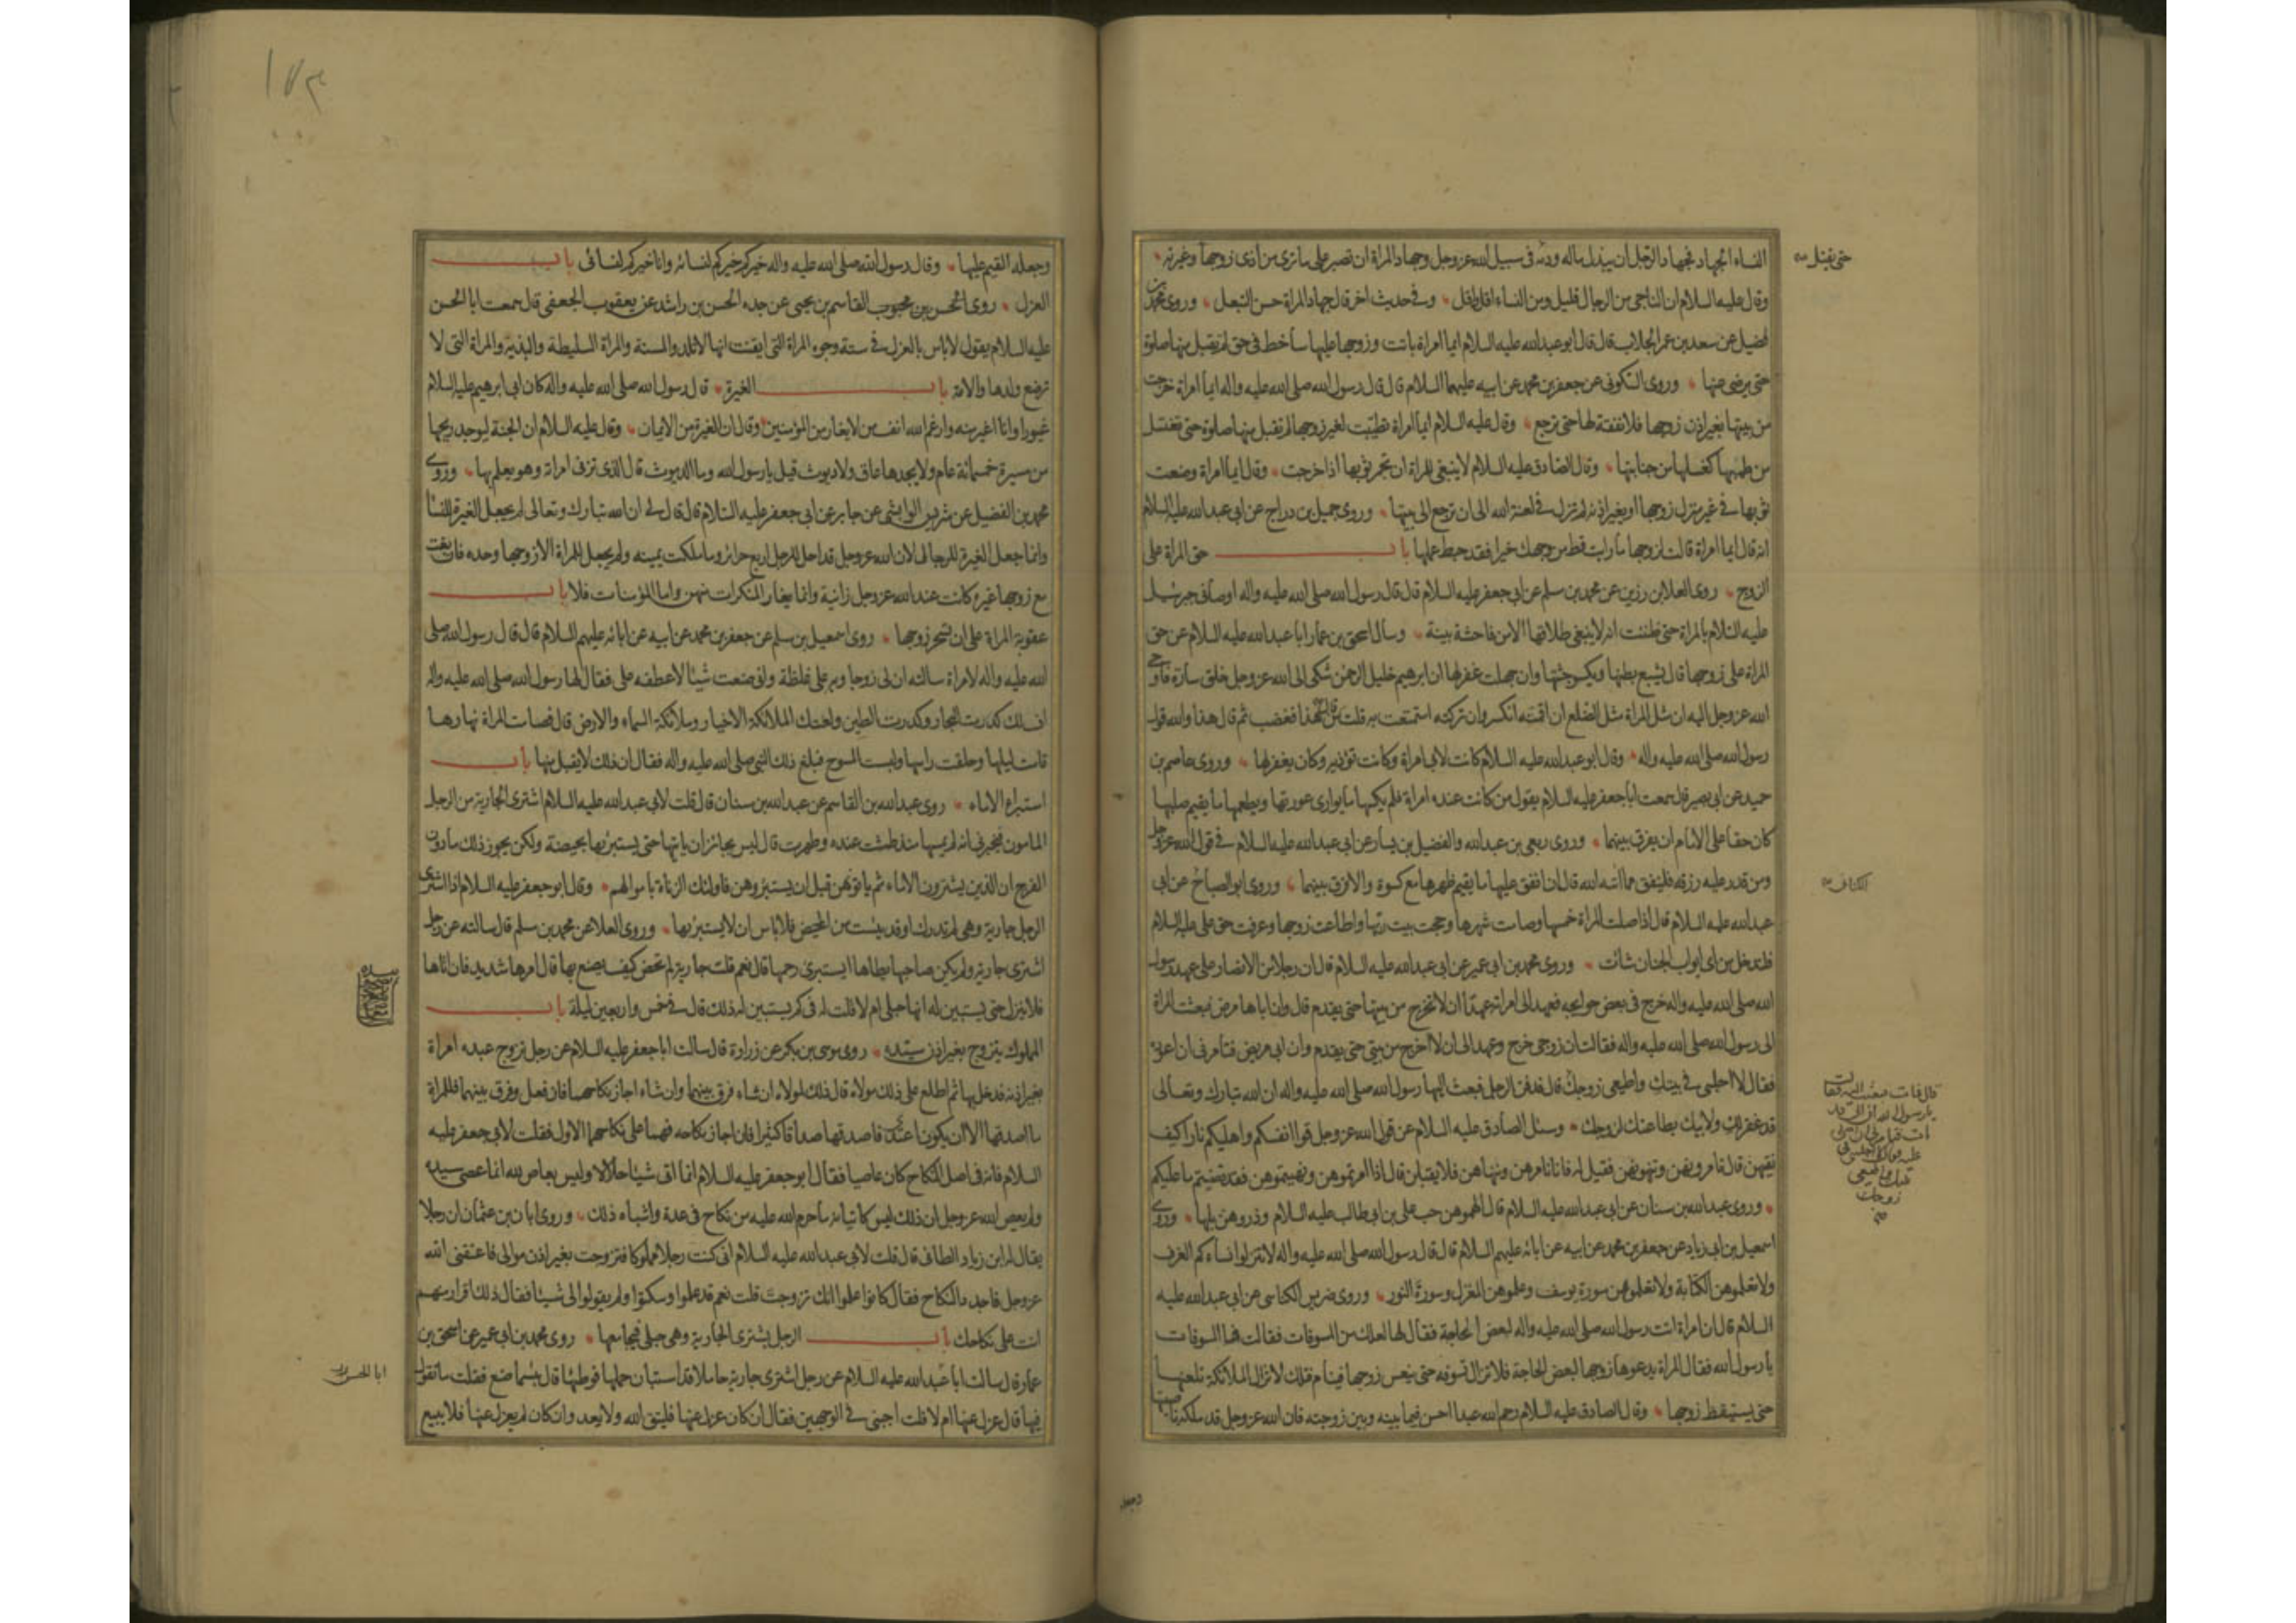 النساء الجهاد فجهاد الرجل ان يبذل ماله ودمه فى سبيل الله عز وجل وجهاد المراة ان تصبر على ما ترى من اذى زوجها وغيرته
حتى يقتل
وقال عليه السلام ان الناجى من الرجال قليل ومن النساء اقل واقل وفى حديث اخر قال جهاد المراة حسن التبعل وروى محمد بن
فضيل عن سعد بن عمر الجلاب قال قال ابو عبد الله عليه السلام ايما امراة باتت وزوجها عليها ساخط فى حق لم تقبل منها صلوة
حتى يرضى عنها وروى السكونى عن جعفر بن محمد عن ابيه عليهما السلام قال قال رسول الله صلى الله عليه واله ايما امراة خرجت
من بيتها بغير اذن زوجها فلا نفقة لها حتى ترجع وقال عليه السلام ايما امراة تطيبت لغير زوجها لم تقبل منها صلوة حتى تغتسل
من طيبها كغسلها من جنابتها وقال الصادق عليه السلام لا ينبغى للمراة ان تجمر ثوبها اذا خرجت وقال ايما امراة وضعت
ثوبها فى غير منزل زوجها او بغير اذنه لم تزل فى لعنة الله الى ان ترجع الى بيتها وروى جميل بن دراج عن ابى عبد الله عليه السلام
انه قال ايما امراة قالت لزوجها ما رايت قط من وجهك خيرا فقد حبط عملها باب حق المراة على
الزوج روى العلا بن رزين عن محمد بن مسلم عن ابى جعفر عليه السلام قال قال رسول الله صلى الله عليه واله اوصانى جبرئيل
عليه السلام بالمراة حتى ظننت انه لا ينبغى طلاقها الا من فاحشة بينة وسال اسحق بن عمار ابا عبد الله عليه السلام عن حق
المراة على زوجها قال يشبع بطنها ويكسو جثتها وان جهلت غفر لها ان ابرهيم خليل الرحمن شكى الى الله عز وجل خلق سارة فاوحى
الله عز وجل اليه ان مثل المراة مثل الضلع ان اقمته انكسر وان تركته استمتعت به قلت من قال هذا فغضب ثم قال هذا والله قول
رسول الله صلى الله عليه واله وقال ابو عبد الله عليه السلام كانت لابى امراة وكانت تؤذيه وكان يغفر لها وروى عاصم بن
حميد عن ابى بصير قال سمعت ابا جعفر عليه السلام يقول من كانت عنده امراة فلم يكسها ما يوارى عورتها ويطعمها ما يقيم صلبها
كان حقا على الامام ان يفرق بينهما وروى ربعى بن عبد الله والفضيل بن يسار عن ابى عبد الله عليه السلام فى قول الله عز وجل
ومن قدر عليه رزقه فلينفق مما اتيه الله قال ان انفق عليها ما يقيم ظهرها مع كسوة والا فرق بينهما وروى ابو الصباح عن ابى
الكنانى
عبد الله عليه السلام قال اذا صلت المراة خمسها وصامت شهرها وحجت بيت ربها واطاعت زوجها وعرفت حق على عليه السلام
فلتدخل من اى ابواب الجنان شائت وروى محمد بن ابى عمير عن ابى عبد الله عليه السلام قال ان رجلا من الانصار على عهد رسول
الله صلى الله عليه واله خرج فى بعض حوايجه فعهد الى امراته عهدا ان لا تخرج من بيتها حتى يقدم قال وان اباها مرض فبعثت المراة
الى رسول الله صلى الله عليه واله فقالت ان زوجى خرج وعهد الى ان لا اخرج من بيتى حتى يقدم وان ابى مريض فتامرنى ان اعوده
فقال لا اجلسى فى بيتك واطيعى زوجك قال فدفن الرجل فبعث اليها رسول الله صلى الله عليه واله ان الله تبارك وتعالى
قال فمات فبعثت اليه فقالت
يا رسول الله ان ابى قد
مات فتامرنى ان اصلى
عليه فقال لا اجلسى فى
بيتك واطيعى
زوجك
قد غفر لك ولابيك بطاعتك لزوجك وسئل الصادق عليه السلام عن قول الله عز وجل قوا انفسكم واهليكم نارا كيف
نقيهن قال تامرونهن وتنهونهن فقيل له فانا نامرهن وننهاهن فلا يقبلن قال اذا امرتموهن ونهيتموهن فقد قضيتم ما عليكم
وروى عبد الله بن سنان عن ابى عبد الله عليه السلام قال الهموهن حب على بن ابى طالب عليه السلام وذروهن بلها وروى
اسمعيل بن ابى زياد عن جعفر بن محمد عن ابيه عن ابائه عليهم السلام قال قال رسول الله صلى الله عليه واله لا تنزلوا نساءكم الغرف
ولا تعلموهن الكتابة ولا تعلموهن سورة يوسف وعلموهن المغزل وسورة النور وروى ضريس الكناسى عن ابى عبد الله عليه
السلام قال ان امراة اتت رسول الله صلى الله عليه واله لبعض الحاجة فقال لها لعلك من المسوفات فقالت فما المسوفات
يا رسول الله فقال المراة يدعوها زوجها لبعض الحاجة فلا تزال تسوفه حتى ينعس زوجها فينام فتلك لا تزال الملائكة تلعنها
حتى يستيقظ زوجها وقال الصادق عليه السلام رحم الله عبدا احسن فيما بينه وبين زوجته فان الله عز وجل قد ملكه ناصيتها
وجعله
وجعله القيم عليها وقال رسول الله صلى الله عليه واله خيركم خيركم لنسائه وانا خيركم لنسائى باب
العزل روى الحسن بن محبوب القاسم بن يحيى عن جده الحسن بن راشد عن يعقوب الجعفى قال سمعت ابا الحسن
عليه السلام يقول لا باس بالعزل فى ستة وجوه المراة التى ايقنت انها لا تلد والمسنة والمراة السليطة والبذية والمراة التى لا
ترضع ولدها والامة باب الغيرة قال رسول الله صلى الله عليه واله كان ابى ابرهيم عليه السلام
غيورا وانا اغير منه وارغم الله انف من لا يغار من المؤمنين وقال ان الغيرة من الايمان وقال عليه السلام ان الجنة ليوجد ريحها
من مسيرة خمسمائة عام ولا يجدها عاق ولا ديوث قيل يا رسول الله وما الديوث قال الذى تزنى امراته وهو يعلم بها وروى
محمد بن الفضيل عن شريس الوابشى عن جابر عن ابى جعفر عليه السلام قال قال لى ان الله تبارك وتعالى لم يجعل الغيرة للنساء
وانما جعل الغيرة للرجال لان الله عز وجل قد احل للرجل اربع حرائر وما ملكت يمينه ولم يجعل للمراة الا زوجها وحده فان بغت
مع زوجها غيره كانت عند الله عز وجل زانية وانما يغار المنكرات منهن واما المؤمنات فلا باب
عقوبة المراة على ان تسحر زوجها روى اسمعيل بن مسلم عن جعفر بن محمد عن ابيه عن ابائه عليهم السلام قال قال رسول الله صلى
الله عليه واله لامراة سالته ان لى زوجا وبه على غلظة وانى صنعت شيئا لاعطفه على فقال لها رسول الله صلى الله عليه واله
اف لك كدرت البحار وكدرت الطين ولعنتك الملائكة الاخيار وملائكة السماء والارض قال فصامت المراة نهارها
قامت ليلها وحلقت راسها ولبست المسوح فبلغ ذلك النبى صلى الله عليه واله فقال ان ذلك لا يقبل منها باب
استبراء الاماء روى عبد الله بن القاسم عن عبد الله بن سنان قال قلت لابى عبد الله عليه السلام اشترى الجارية من الرجل
المامون فيخبرنى انه لم يمسها منذ طمثت عنده وطهرت قال ليس بجائز ان ياتيها حتى يستبرئها بحيضة ولكن يجوز ذلك ما دون
الفرج ان الذين يشترون الاماء ثم ياتونهن قبل ان يستبرؤهن فاولئك الزناة باموالهم وقال ابو جعفر عليه السلام اذا اشترى
الرجل جارية وهى لم تدرك او قد يئست من المحيض فلا باس ان لا يستبرئها وروى العلا عن محمد بن مسلم قال سالته عن رجل
اشترى جارية ولم يكن صاحبها يطاها ايستبرى رحمها قال نعم قلت جارية لم تحض كيف يصنع بها قال امرها شديد فان اتاها
فلا ينزل حتى يستبين له انها حبلى ام لا قلت له فى كم يستبين له ذلك قال فى خمس واربعين ليلة باب
المملوك يتزوج بغير اذن سيده روى موسى بن بكر عن زرارة قال سالت ابا جعفر عليه السلام عن رجل تزوج عبده امراة
بغير اذنه فدخل بها ثم اطلع على ذلك مولاه قال ذلك لمولاه ان شاء فرق بينهما وان شاء اجاز نكاحهما فان فعل وفرق بينهما فللمراة
ما اصدقها الا ان يكون اعتدى فاصدقها صداقا كثيرا فان اجاز نكاحه فهما على نكاحهما الاول فقلت لابى جعفر عليه
السلام فانه فى اصل النكاح كان عاصيا فقال ابو جعفر عليه السلام انما اتى شيئا حلالا وليس بعاص لله انما عصى سيده
ولم يعص الله عز وجل ان ذلك ليس كاتيانه ما حرم الله عليه من نكاح فى عدة واشباه ذلك وروى ابان بن عثمان ان رجلا
يقال له ابن زياد الطائى قال قلت لابى عبد الله عليه السلام انى كنت رجلا مملوكا فتزوجت بغير اذن موالى فاعتقنى الله
عز وجل فاجدد النكاح فقال كانوا علموا انك تزوجت قلت نعم قد علموا وسكتوا ولم يقولوا لى شيئا فقال ذلك اقرار منهم
انت على نكاحك باب الرجل يشترى الجارية وهى حبلى فيجامعها روى محمد بن ابى عمير عن اسحق بن
عمار قال سالت ابا عبد الله عليه السلام عن رجل اشترى جارية حاملا قد استبان حملها فوطئها قال بئسما صنع فقلت ما تقول
ابا الحسن
فيها قال عزل عنها ام لا قلت اجبنى فى الوجهين فقال ان كان عزل عنها فليتق الله ولا يعد وان كان لم يعزل عنها فلا يبيع